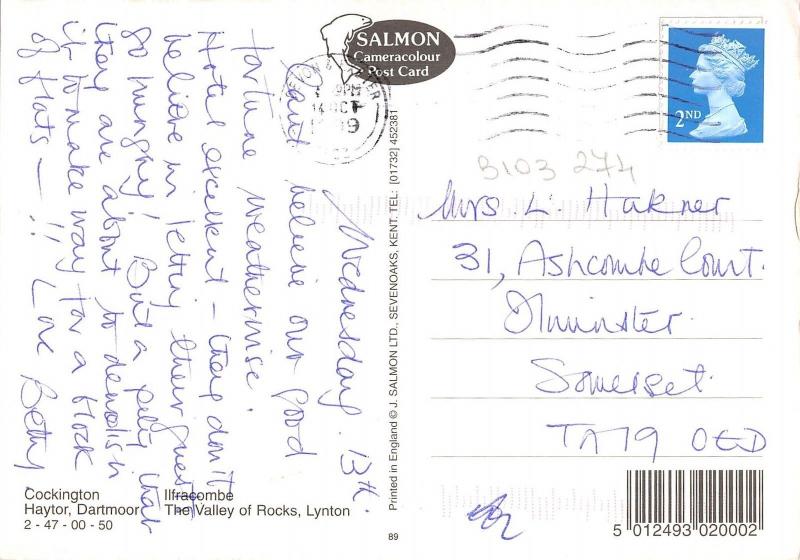 Wednesday. 13th.
Can't believe our good
fortune weatherwise.
Hotel excellent – they don't
believe in letting their guests
go hungry! But a pity that
they are about to demolish
it to make way for a block
of flats – !! Love Betty.
Cockington
Haytor, Dartmoor
2 - 47 - 00 - 50
Ilfracombe
The Valley of Rocks, Lynton
SALMON
Cameracolour
Post Card
DEVON & EXETER
PM
14 OCT
Printed in England © J. SALMON LTD., SEVENOAKS, KENT. TEL: [01732] 452381
89
2ND
B103 274
Mrs. L. Hakner
31, Ashcombe Court.
Ilminster.
Somerset.
TA19 0ED
5 012493 020002